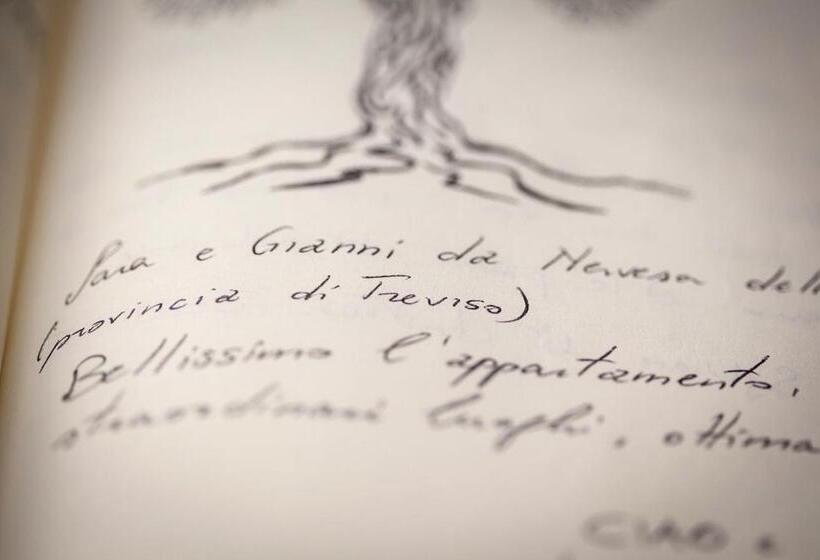 Sara e Gianni da Nervesa dell
(provincia di Treviso)
Bellissimo l'appartamento,
straordinari luoghi, ottima
CIAO